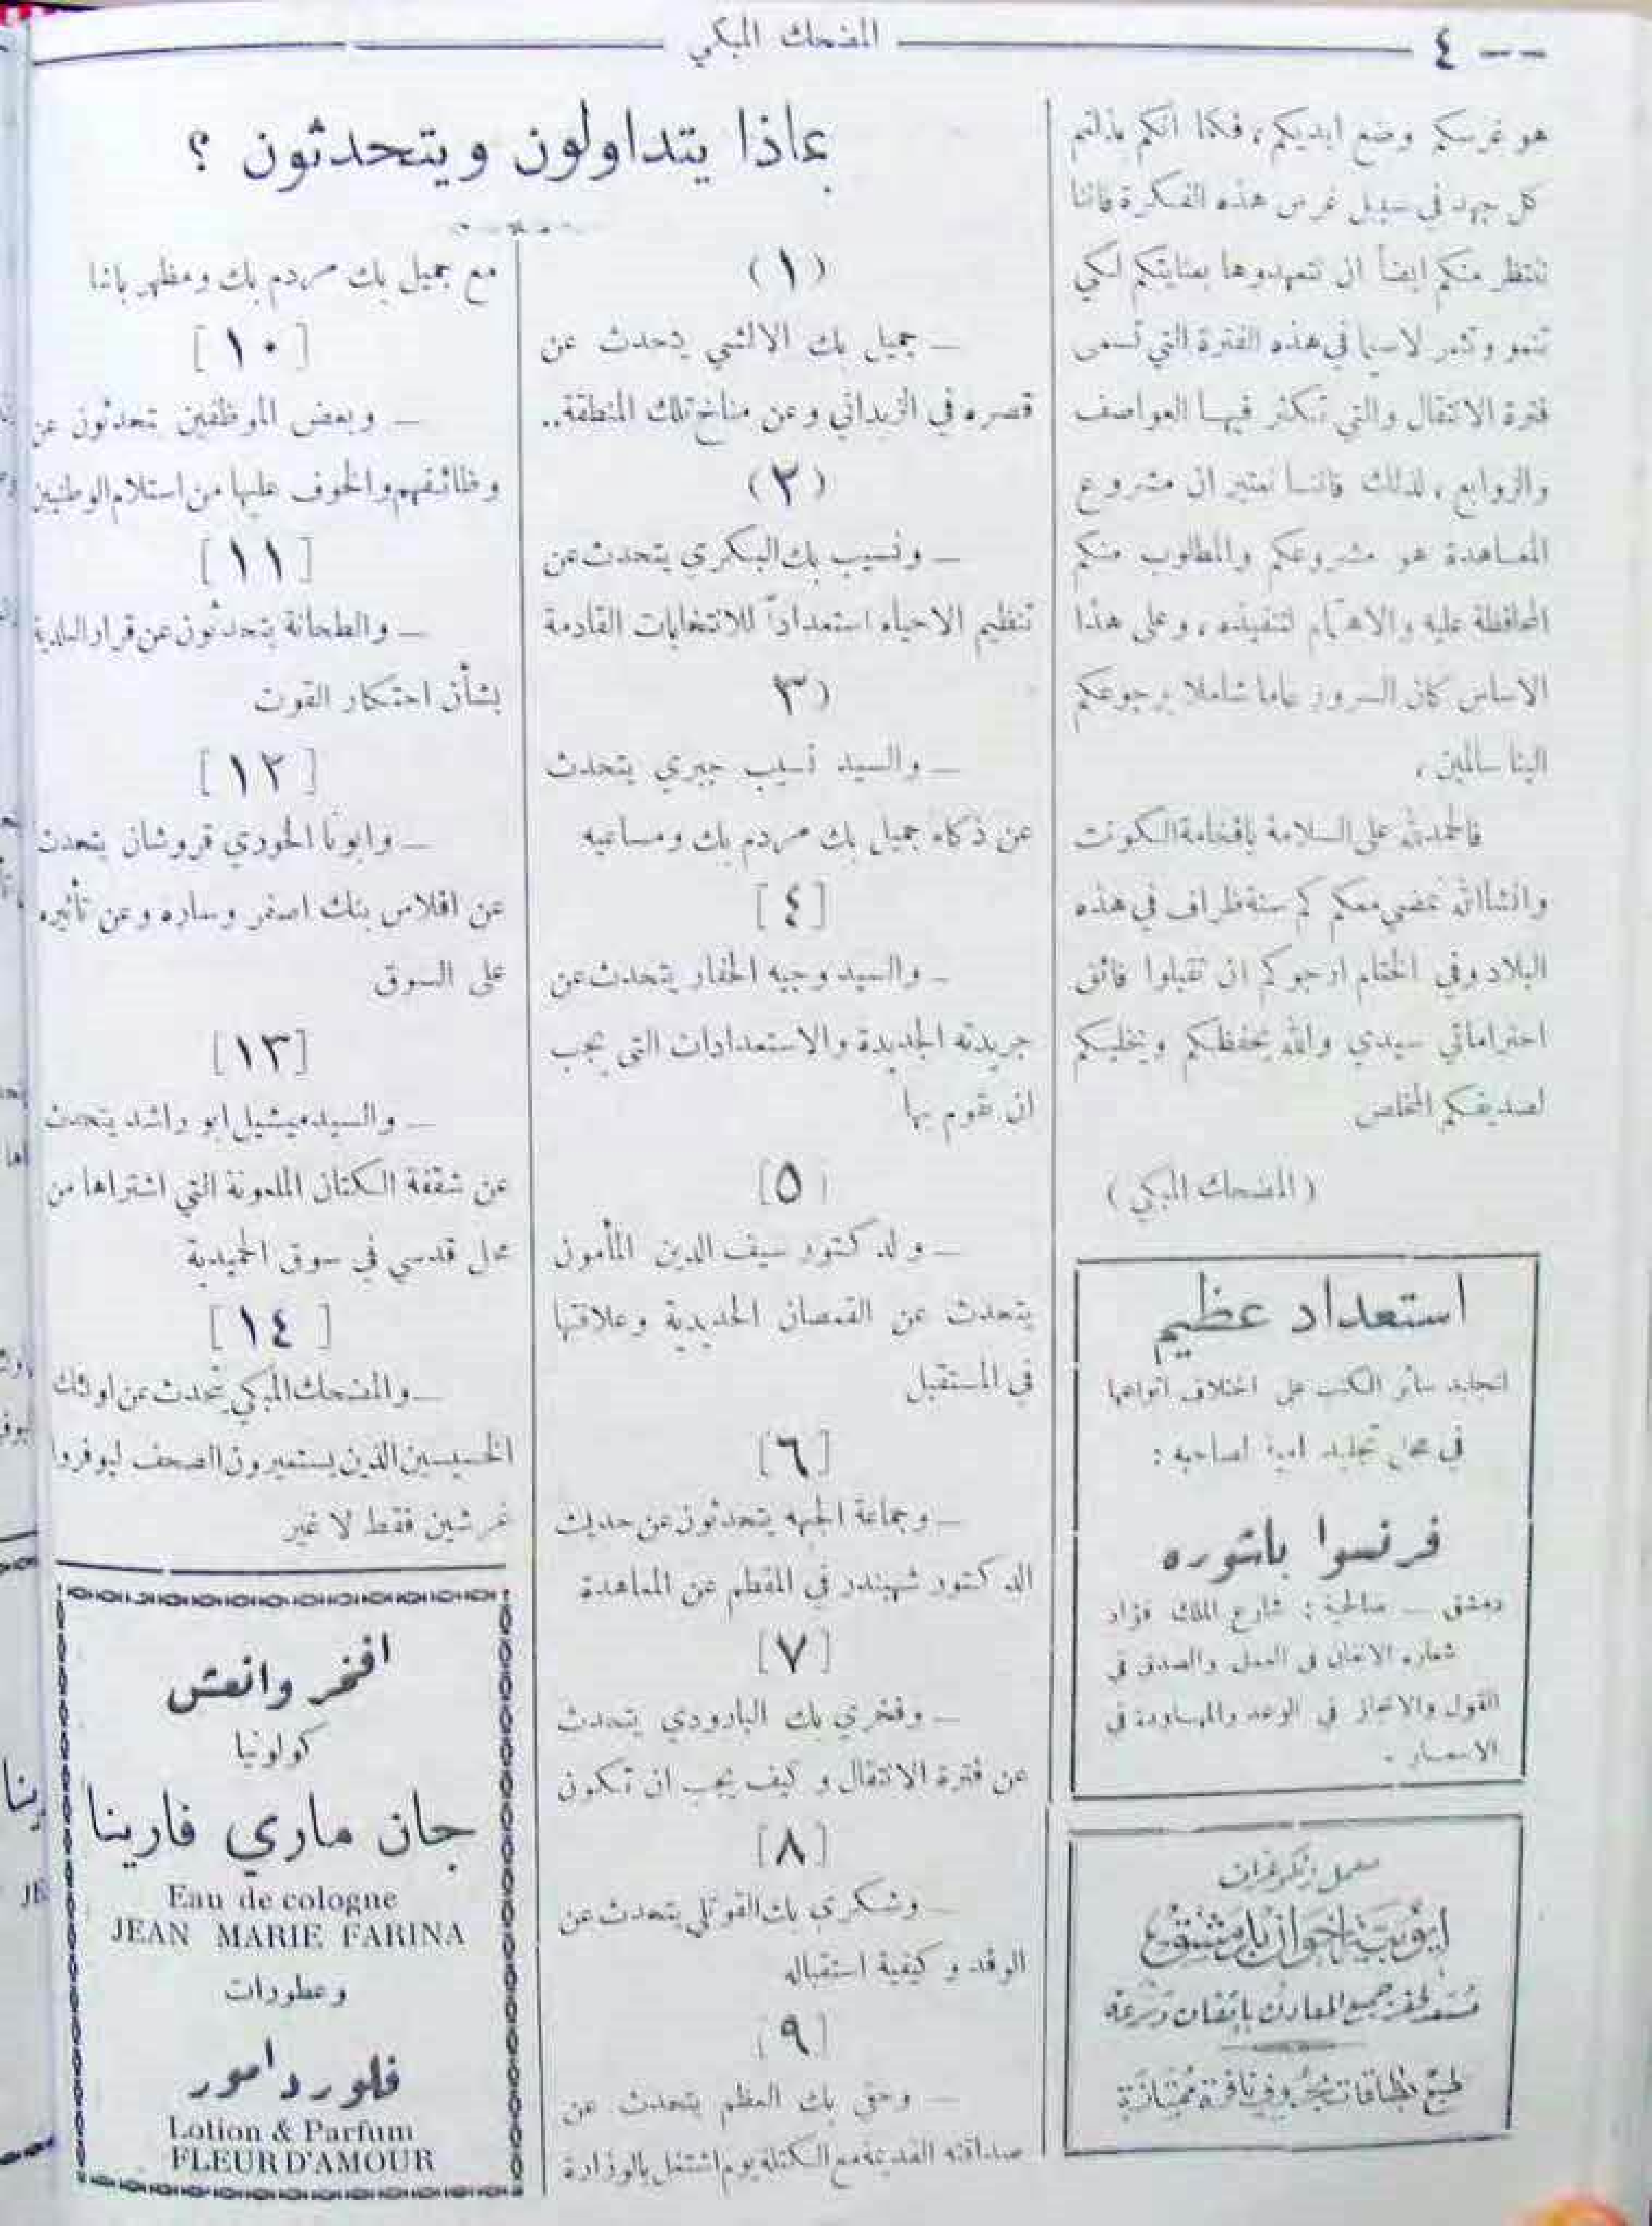 ٤ --
المضحك المبكي
هو غرسكم وضع ايديكم، فكما انكم بذلتم
كل جهد في سبيل غرس هذه الفكرة فاننا
ننتظر منكم ايضاً ان تتعهدوها بعنايتكم لكي
تنمو وتثمر لاسيما في هذه الفترة التي تسمى
فترة الانتقال والتي تكثر فيها العواصف
والزوابع، لذلك فاننا نعتبر ان مشروع
المعاهدة هو مشروعكم والمطلوب منكم
المحافظة عليه والاهتمام لتنفيذه، وعلى هذا
الاساس كان السرور عاما شاملا برجوعكم
الينا سالمين،
فالحمدلله على السلامة يافخامة الكونت
وانشاالله نمضي معكم كم سنة ظراف في هذه
البلاد وفي الختام ارجوكم ان تقبلوا فائق
احتراماتي سيدي والله يحفظكم ويخليكم
لصديقكم المخلص
(المضحك المبكي)
استعداد عظيم
لتجليد سائر الكتب على اختلاف انواعها
في محل تجليد اميه لصاحبه:
فرنسوا باشوره
دمشق — صالحية: شارع الملك فؤاد
شعاره الاتقان في العمل والصدق في
القول والانجاز في الوعد والمهاودة في
الاسعار.
معمل زنكوغراف
ايوبية اخوان بدمشق
مستعد لحفر جميع المعادن باتقان وسرعة
طبع بطاقات بحروف نافرة ممتازة
بماذا يتداولون ويتحدثون ؟
(١)
— جميل بك الالشي يتحدث عن
قصره في الزبداني وعن مناخ تلك المنطقة..
(٢)
— ونسيب بك البكري يتحدث عن
تنظيم الاحياء استعداداً للانتخابات القادمة
(٣
— والسيد نسيب جبري يتحدث
عن ذكاء جميل بك مردم بك ومساعيه
[٤]
— والسيد وجيه الحفار يتحدث عن
جريدته الجديدة والاستعدادات التي يجب
ان تقوم بها
[٥]
— ولد كتور سيف الدين المأمون
يتحدث عن القمصان الحديدية وعلاقتها
في المستقبل
[٦]
— وجماعة الجبهه يتحدثون عن حديث
الدكتور شهبندر في المقطم عن المعاهدة
[٧]
— وفخري بك البارودي يتحدث
عن فترة الانتقال وكيف يجب ان تكون
[٨]
— وشكري بك القوتلي يتحدث عن
الوفد وكيفية استقباله
[٩]
— وحقي بك العظم يتحدث عن
صداقته القديمة مع الكتلة يوم اشتغل بالوزارة
مع جميل بك مردم بك ومظهر باشا
[١٠]
— وبعض الموظفين تحدثون عن
وظائفهم والخوف عليها من استلام الوطنيين
[١١]
— والطحانة يتحدثون عن قرار البلدية
بشأن احتكار القوت
[١٢]
— وابونا الخوري قروشان يتحدث
عن افلاس بنك اصفر وساره وعن تأثيره
على السوق
[١٣]
— والسيد ميشيل ابو راشد يتحدث
عن شقفة الكتان الملعونة التي اشتراها من
محل قدسي في سوق الحميدية
[١٤]
— والمضحك المبكي يتحدث عن اولئك
الخسيسين الذين يستعيرون الصحف ليوفروا
غرشين فقط لا غير
افخر وانعش
كولونيا
جان ماري فارينا
Eau de cologne
JEAN MARIE FARINA
وعطورات
فلور دامور
Lotion & Parfum
FLEUR D'AMOUR